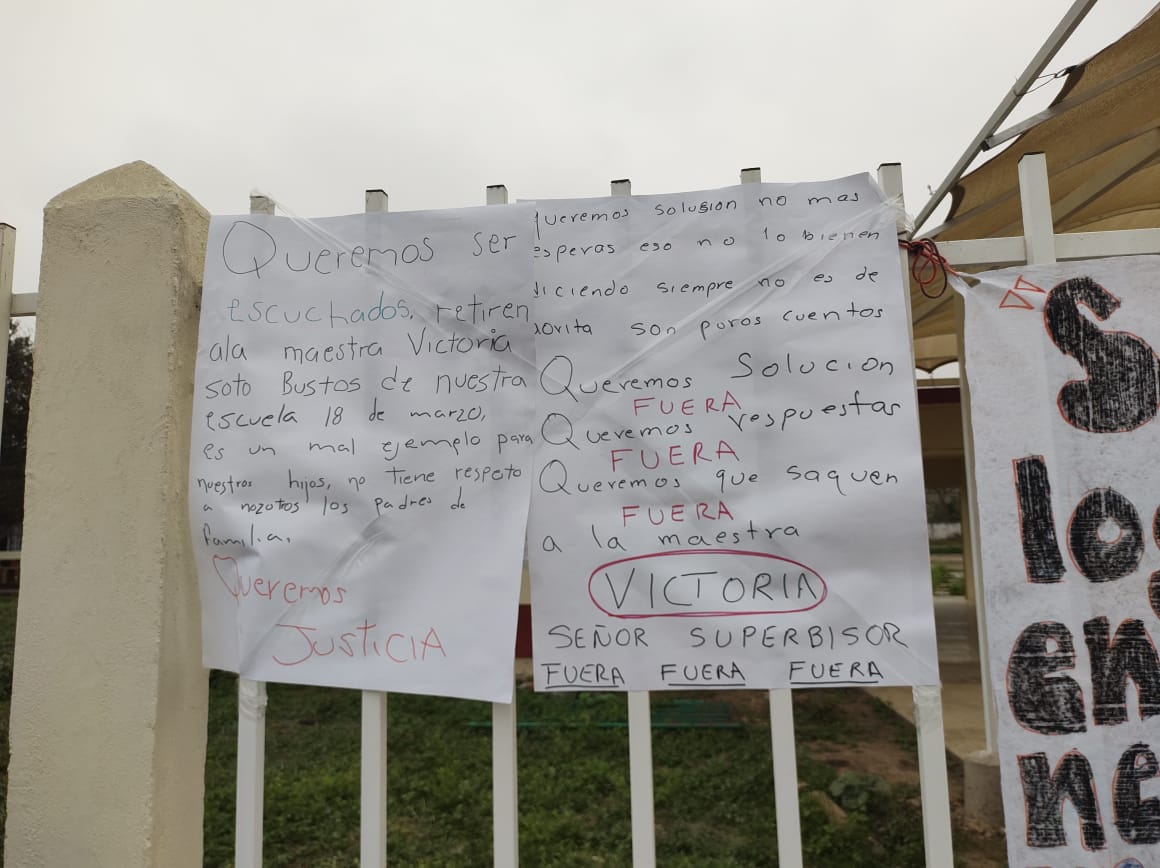 Queremos ser
escuchados, retiren
ala maestra Victoria
soto Bustos de nuestra
escuela 18 de marzo,
es un mal ejemplo para
nuestros hijos, no tiene respeto
a nozotros los padres de
familia,
Queremos
JUSTICIA
queremos solusion no mas
esperas eso no lo bienen
diciendo siempre no es de
son puros cuentos
Queremos Solucion
FUERA
Queremos respuestas
FUERA
Queremos que saquen
FUERA
a la maestra
VICTORIA
SEÑOR SUPERBISOR
FUERA FUERA FUERA
S
los
en
ne